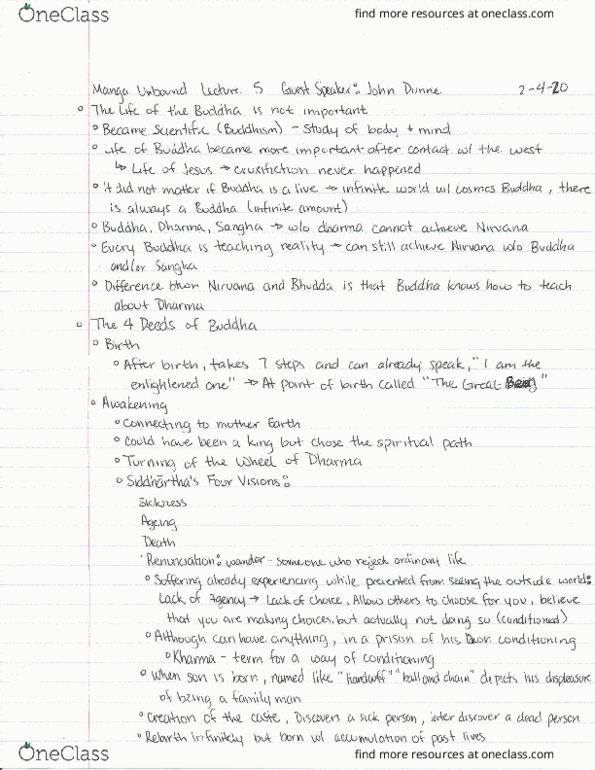 OneClass
find more resources at oneclass.com
Manga Unbound Lecture. 5 Guest Speaker: John Dunne 2-4-20
The Life of the Buddha is not important
Became Scientific (Buddhism) - study of body + mind
Life of Buddha became more important after contact w/ the west
↳ Life of Jesus → cruxifiction never happened
it did not matter if Buddha is alive → infinite world w/ cosmos Buddha, there
is always a Buddha (infinite amount)
Buddha, Dharma, Sangha → w/o dharma cannot achieve Nirvana
Every Buddha is teaching reality → can still achieve Nirvana w/o Buddha
and/or Sangha
Difference btwn Nirvana and Bhudda is that Buddha knows how to teach
about Dharma
The 4 Deeds of Buddha
Birth
After birth, takes 7 steps and can already speak, "I am the
enlightened one" → At point of birth called "The Great Being"
Awakening
Connecting to mother Earth
Could have been a king but chose the spiritual path
Turning of the Wheel of Dharma
Siddhārtha's Four Visions:
Sickness
Ageing
Death
Renunciation: wander - someone who reject ordinant life
Soffering already experiencing while prevented from seeing the outside world:
Lack of Agency → Lack of choice, Allow others to choose for you, believe
that you are making choices, but actually not doing so (conditioned)
Although can have anything, in a prison of his own conditioning
Kharma - term for a way of conditioning
When son is born, named like "handcuff" "ball and chain" depicts his displeasure
of being a family man
Creation of the caste, Discovers a sick person, later discover a dead person
Rebirth infinitely but born w/ accumulation of past lives
OneClass
find more resources at oneclass.com